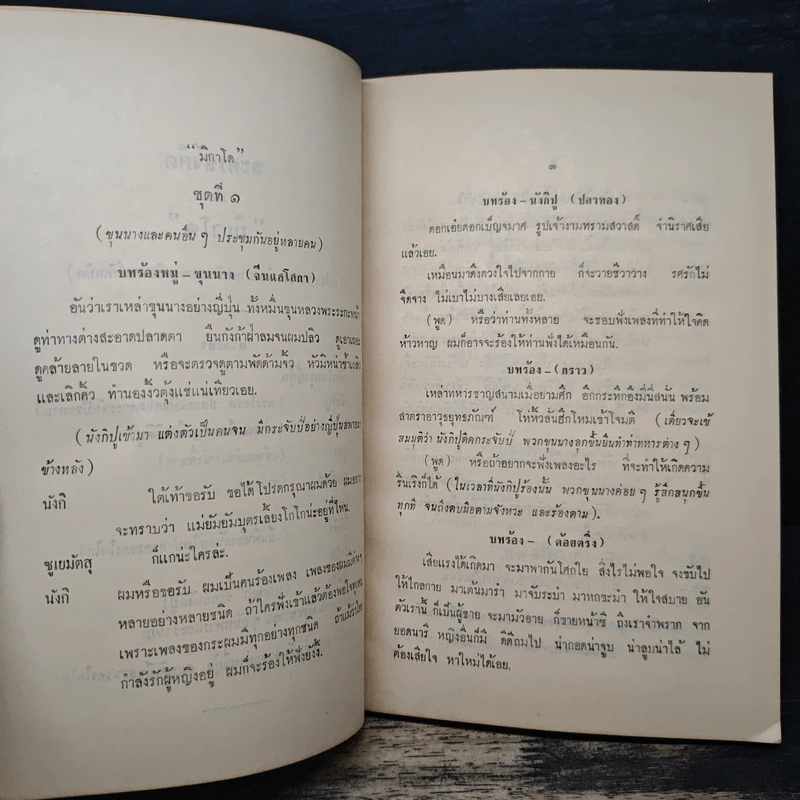 “มิกาโด”
ชุดที่ ๑
(ขุนนางและคนอื่น ๆ ประชุมกันอยู่หลายคน)
บทร้องหมู่–ขุนนาง (จีนแสโสกา)
อันว่าเราเหล่าขุนนางอย่างญี่ปุ่น ทั้งหมื่นขุนหลวงพระ
ดูท่าทางต่างสะอาดปลาดตา ยืนกังก้าฝ่าลมจนผมปลิว
ดูคล้ายลายในขวด หรือจะตรวจดูตามพัดด้ามจิ้ว
และเลิกคิ้ว ทำนองงิ้วตุ้งแช่แน่เทียวเอย.
(นังกิปูเข้ามา แต่งตัวเป็นคนจน มีกระจับปี่อย่างญี่ปุ่น
ข้างหลัง)
นังกิ ใต้เท้าขอรับ ขอได้โปรดกรุณาผมด้วย
จะทราบว่า แม่ยัมยัมบุตรเลี้ยงโกโกน่ะอยู่ที่ไหน.
ซูเยมัตสุ ก็แกน่ะใครล่ะ.
นังกิ ผมหรือขอรับ ผมเป็นคนร้องเพลง เพลงของผมมีต่าง ๆ
หลายอย่างหลายชนิด ถ้าใครฟังเข้าแล้วต้องพอใจทุกคน
เพราะเพลงของกระผมมีทุกอย่างทุกชนิด
กำลังรักผู้หญิงอยู่ ผมก็จะร้องให้ฟังยังงี้.
๓
บทร้อง–นังกิปู (ปลาทอง)
ดอกเอ๋ยดอกเบ็ญจมาศ รูปเจ้างามทรามสวาสดิ์ จำนิราศเสีย
แล้วเอย.
เหมือนมาดึงดวงใจไปจากกาย ก็จะวายชีวาวาง รสรักไม่
จืดจาง ไม่เบาไม่บางเสียเลยเอย.
(พูด) หรือว่าท่านทั้งหลาย จะชอบฟังเพลงที่ทำให้ใจคิด
ห้าวหาญ ผมก็อาจจะร้องให้ท่านฟังได้เหมือนกัน.
บทร้อง–(กราว)
เหล่าทหารชาญสนามเมื่อยามศึก อึกกระทึกอึงมี่นี่สนั่น พร้อม
สาตราอาวุธยุทธภัณฑ์ โห่หิ้วลั่นฮึกโหมเข้าโจมตี (เดี๋ยวจะเข้
สมมุติว่านังกิปูดีดกระจับปี่ พวกขุนนางลุกขึ้นยืนทำท่าทหารต่าง ๆ)
(พูด) หรือถ้าอยากจะฟังเพลงอะไร ที่จะทำให้เกิดความ
รื่นเริงก็ได้ (ในเวลาที่นังกิปูร้องนั้น พวกขุนนางค่อย ๆ รู้สึกสนุกขึ้น
ทุกที จนถึงตบมือตามจังหวะ และร้องตาม).
บทร้อง– (ต้อยตริ่ง)
เสียแรงได้เกิดมา จะมาพากันโศกใย สิ่งไรไม่พอใจ จงขับไป
ให้ไกลกาย มาเต้นมารำ มาจับระบำ มาหกขะมำ ให้ใจสบาย อัน
ตัวเรานี้ ก็เป็นผู้ชาย จะมามัวอาย ก็ขายหน้าซี ถึงเราจำพราก จาก
ยอดนารี หญิงอื่นก็มี ดีดีถมไป น่ากอดน่าจูบ น่าลูบน่าไล้ ไม่
ต้องเสียใจ หาใหม่ได้เอย.